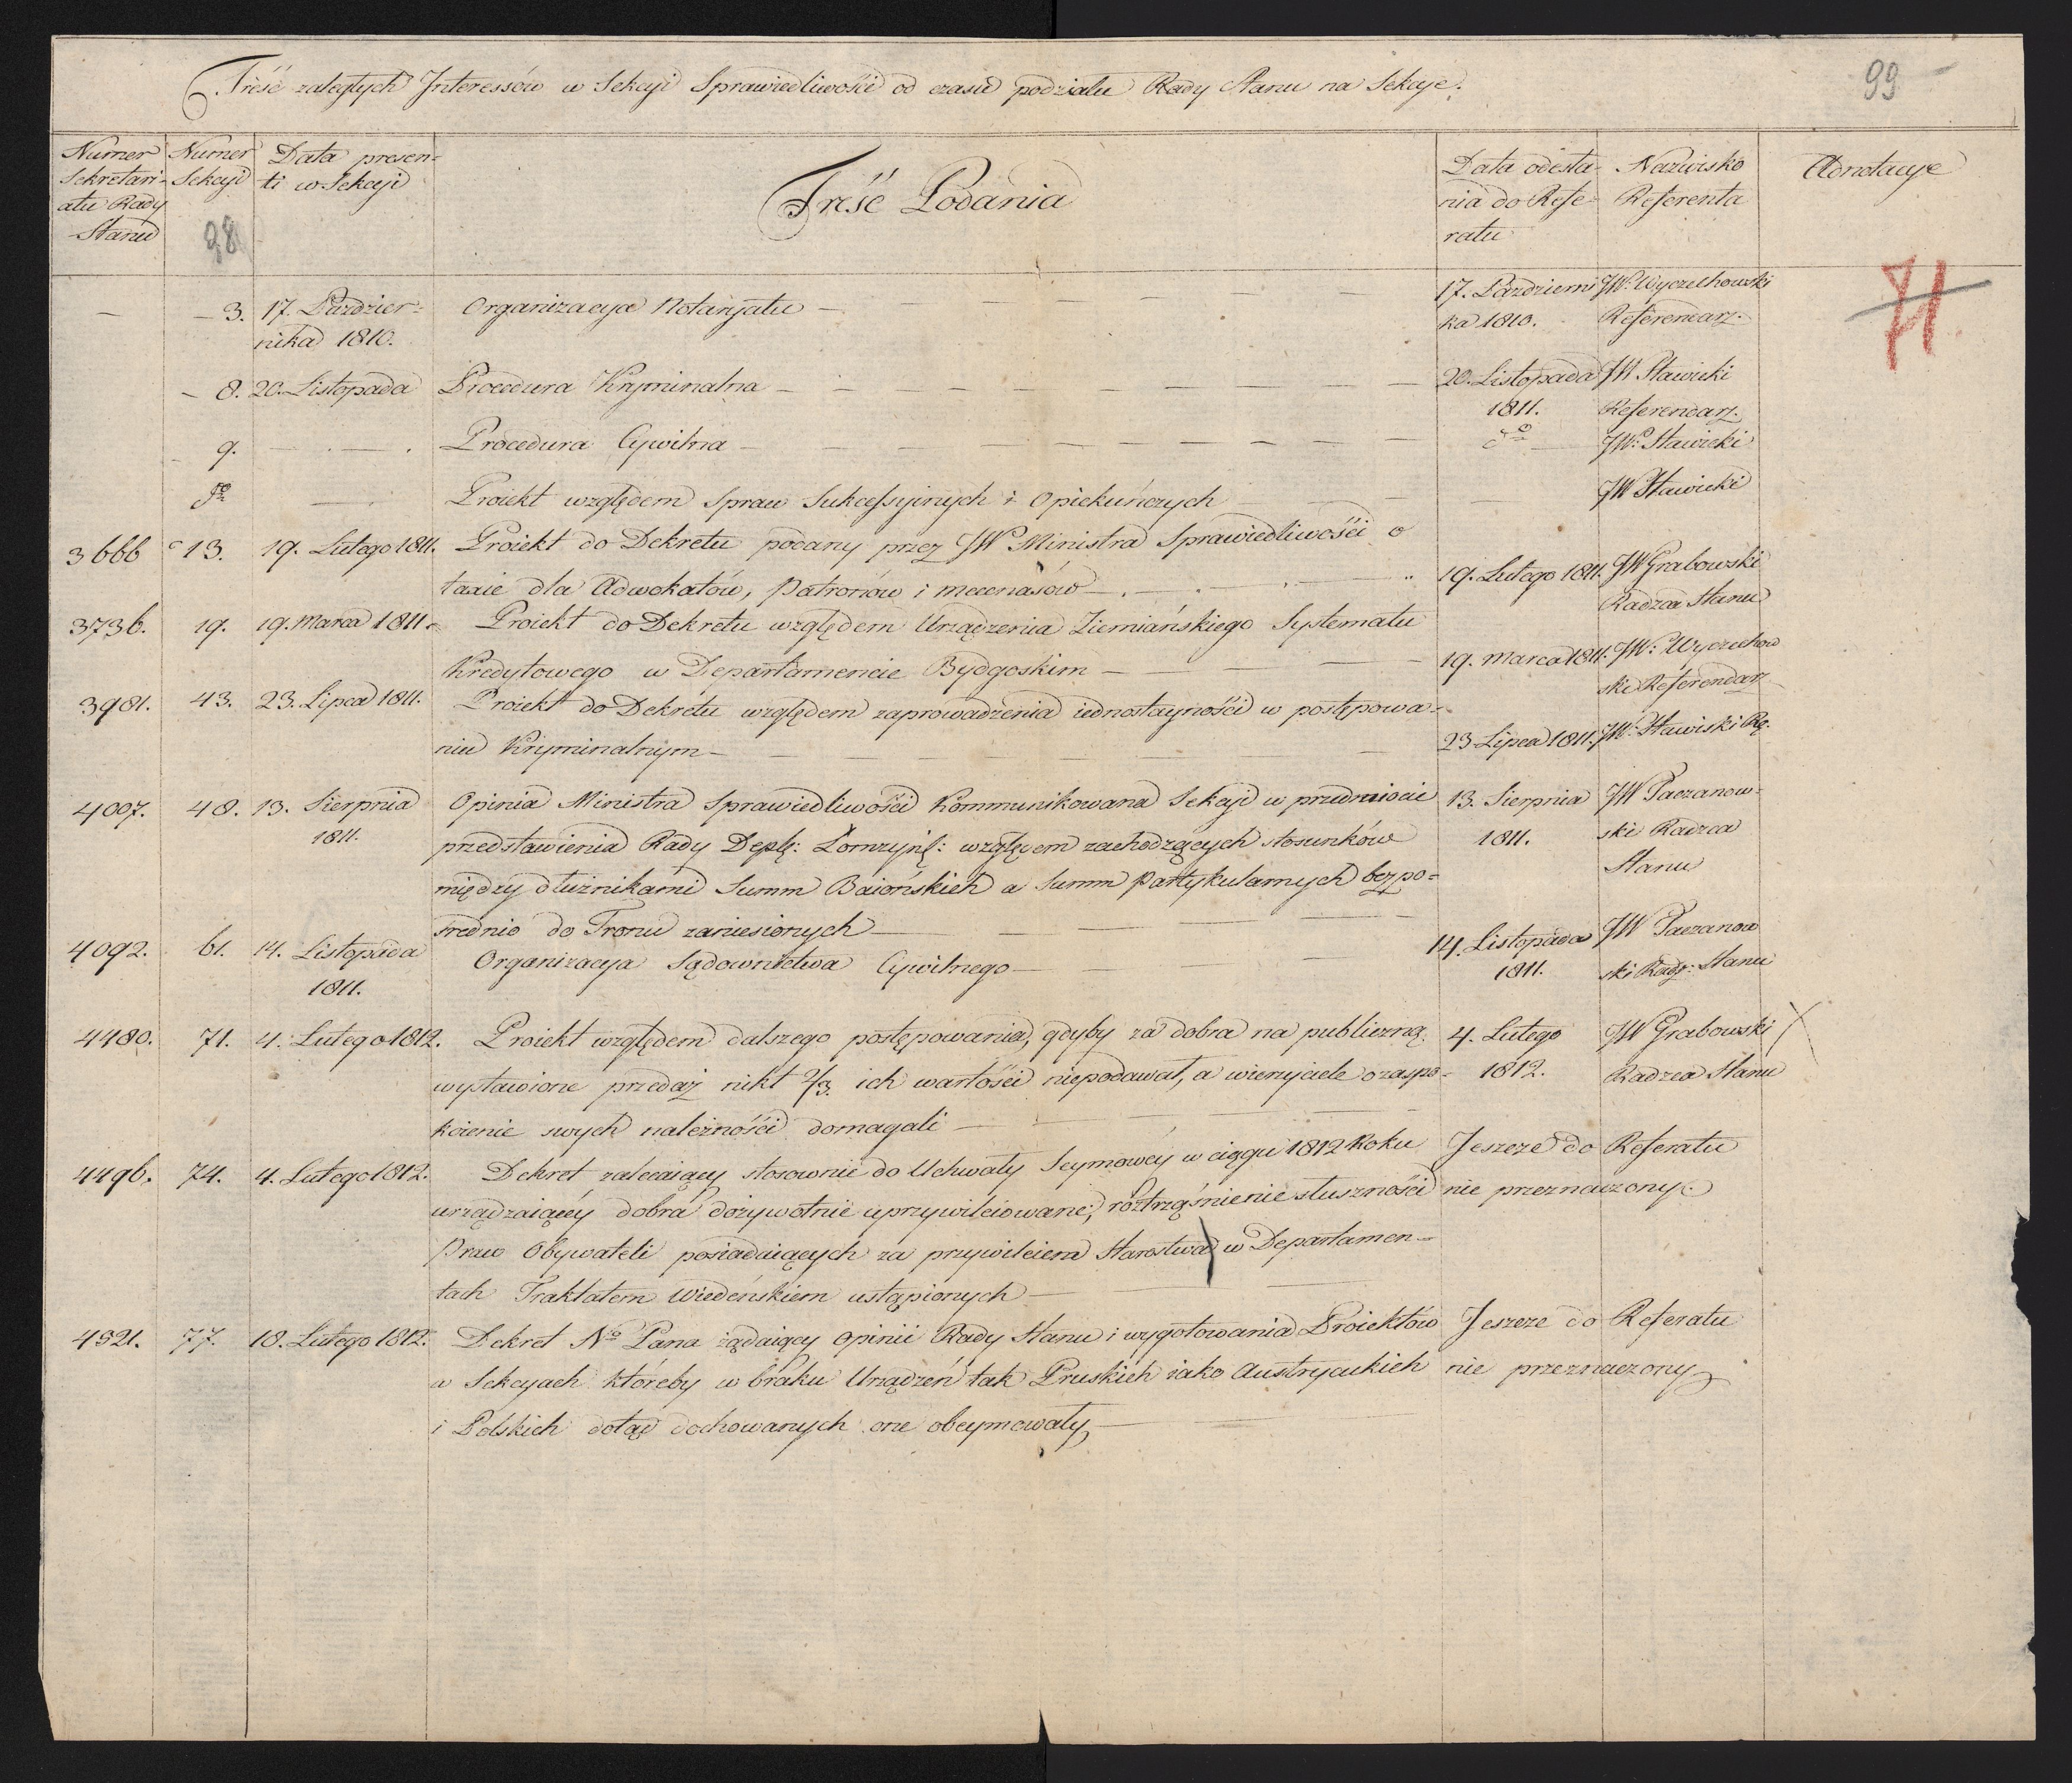 Treść zaległych Interessów w Sekcyi Sprawiedliwości od czasu podziału Rady Stanu na Sekcye.
99
Numer Sekretari-
atu Rady
Stanu
Numer
Sekcyi
98
Data presen-
ti w Sekcyi
Treść Podania
Data odesła-
nia do Refe-
ratu
Nazwisko
Referenta
Adnotacye
71.
— — 3. 17. Paździer- Organizacya Notaryatu — 17. Październi JW. Wyczechowski
nika 1810. ka 1810. Referendarz.
— 8. 20. Listopada Procedura Kryminalna — 20. Listopada JW Sławicki
1811. Referendarz.
9. — . — . Procedura Cywilna — do — JW. Sławicki
do — Proiekt względem Spraw Sukcessyinych i Opiekuńczych — JW Sławicki
3666 13. 19. Lutego 1811. Proiekt do Dekretu podany przez JW Ministra Sprawiedliwości o
taxie dla Adwokatów, Patronów i mecenasów — 19. Lutego 1811. JW Grabowski
Radzca Stanu
3736. 19. 19. Marca 1811. Proiekt do Dekretu względem Urządzenia Ziemiańskiego Systematu
Kredytowego w Departamencie Bydgoskim — 19. Marca 1811. JW: Wyczechow
ski Referendarz
3981. 43. 23. Lipca 1811. Proiekt do Dekretu względem zaprowadzenia iednostayności w postępowa-
niu Kryminalnym — 23 Lipca 1811. JW. Sławiski
4007. 48. 13. Sierpnia Opinia Ministra Sprawiedliwości Kommunikowana Sekcyi w przedmiocie 13. Sierpnia JW Paczanow-
1811. przedstawienia Rady Deptę: Łomżyńs: względem zachodzących stosunków 1811. ski Radzca
między dłużnikami Summ Baiońskich a Summ Partykularnych bezpo= Stanu
średnio do Tronu zaniesionych —
4092. 61. 14. Listopada Organizacya Sądownictwa Cywilnego — 14. Listopada JW Paczanow
1811. 1811. ski Radz: Stanu
4480. 71. 4. Lutego 1812. Proiekt względem dalszego postępowania, gdyby za dobra na publiczną 4. Lutego JW Grabowski X
wystawione przedaż nikt 2/3. ich wartości niepodawał, a wierzyciele o zaspo- 1812. Radzca Stanu
koienie swych należności domagali —
4496. 74. 4. Lutego 1812. Dekret zalecaiący stosownie do Uchwały Seymowéy w ciągu 1812 Roku Jeszcze do Referatu
urządzaiącéy dobra dożywotnie uprzywileiowane, roztrząśnienie słuszności nie przeznaczony.
Praw Obywateli posiadaiących za przywileiem Starostwa w Departamen-
tach Traktatem Wiedeńskiem ustąpionych —
4521. 77. 18. Lutego 1812. Dekret No Pana żądaiący Opinii Rady Stanu i wygotowania Proiektów Jeszcze do Referatu
w Sekcyach któreby w braku Urządzeń tak Pruskich iako Austryackich nie przeznaczony
i Polskich dotąd dochowanych one obeymowały —